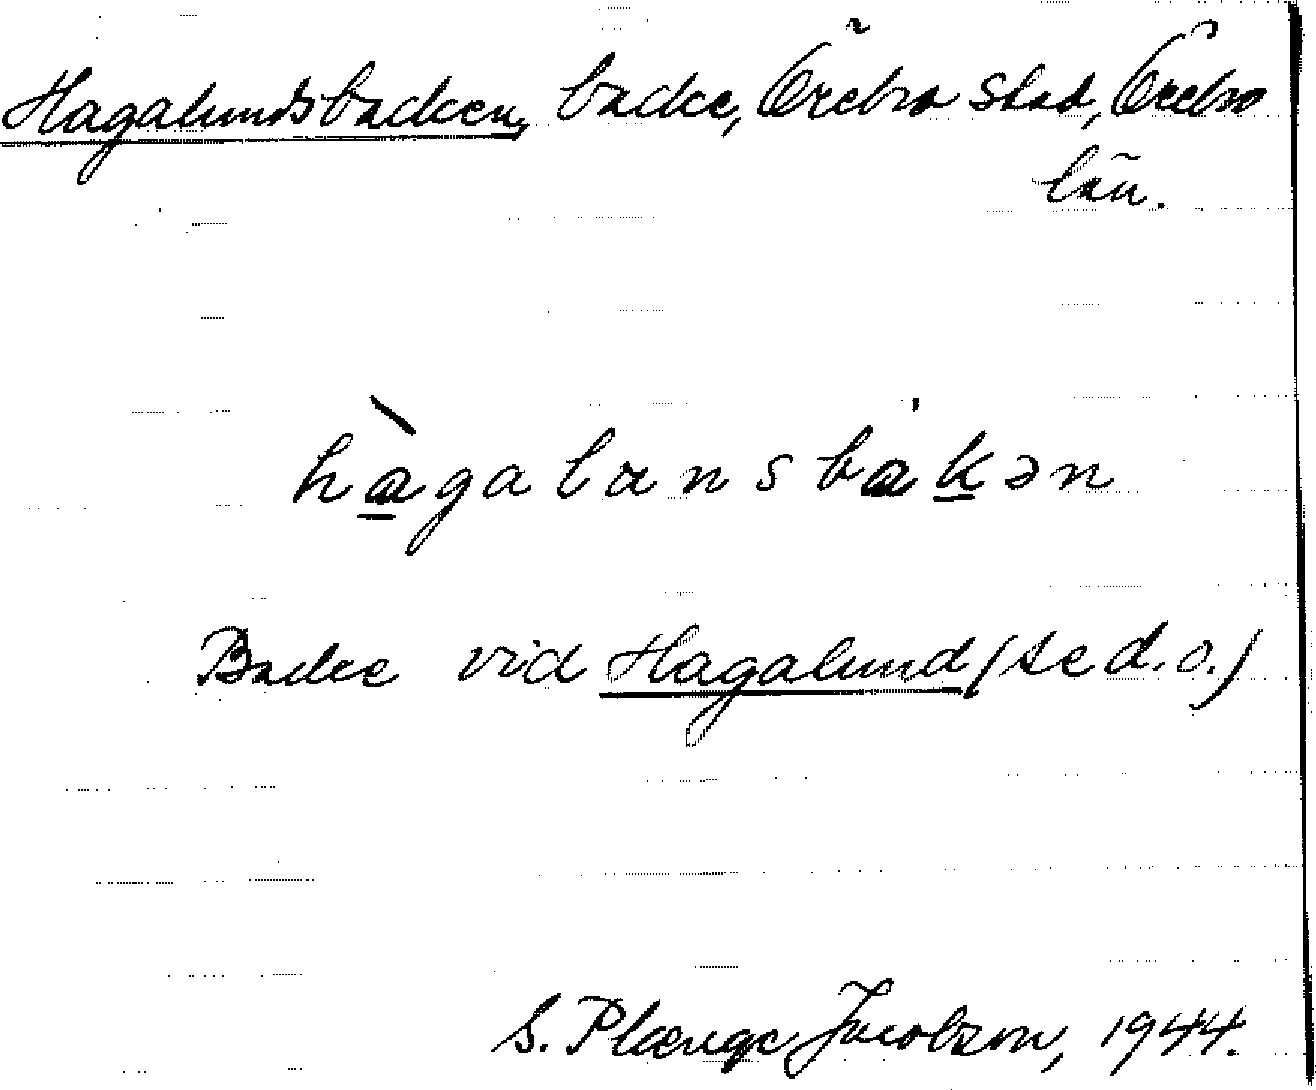 Hagalundsbacken, backe, Örebro stad, Örebro
län.
hàgalansbakən
Backe vid Hagalund (se d.o.)
S. Plænge Jacobson, 1944.